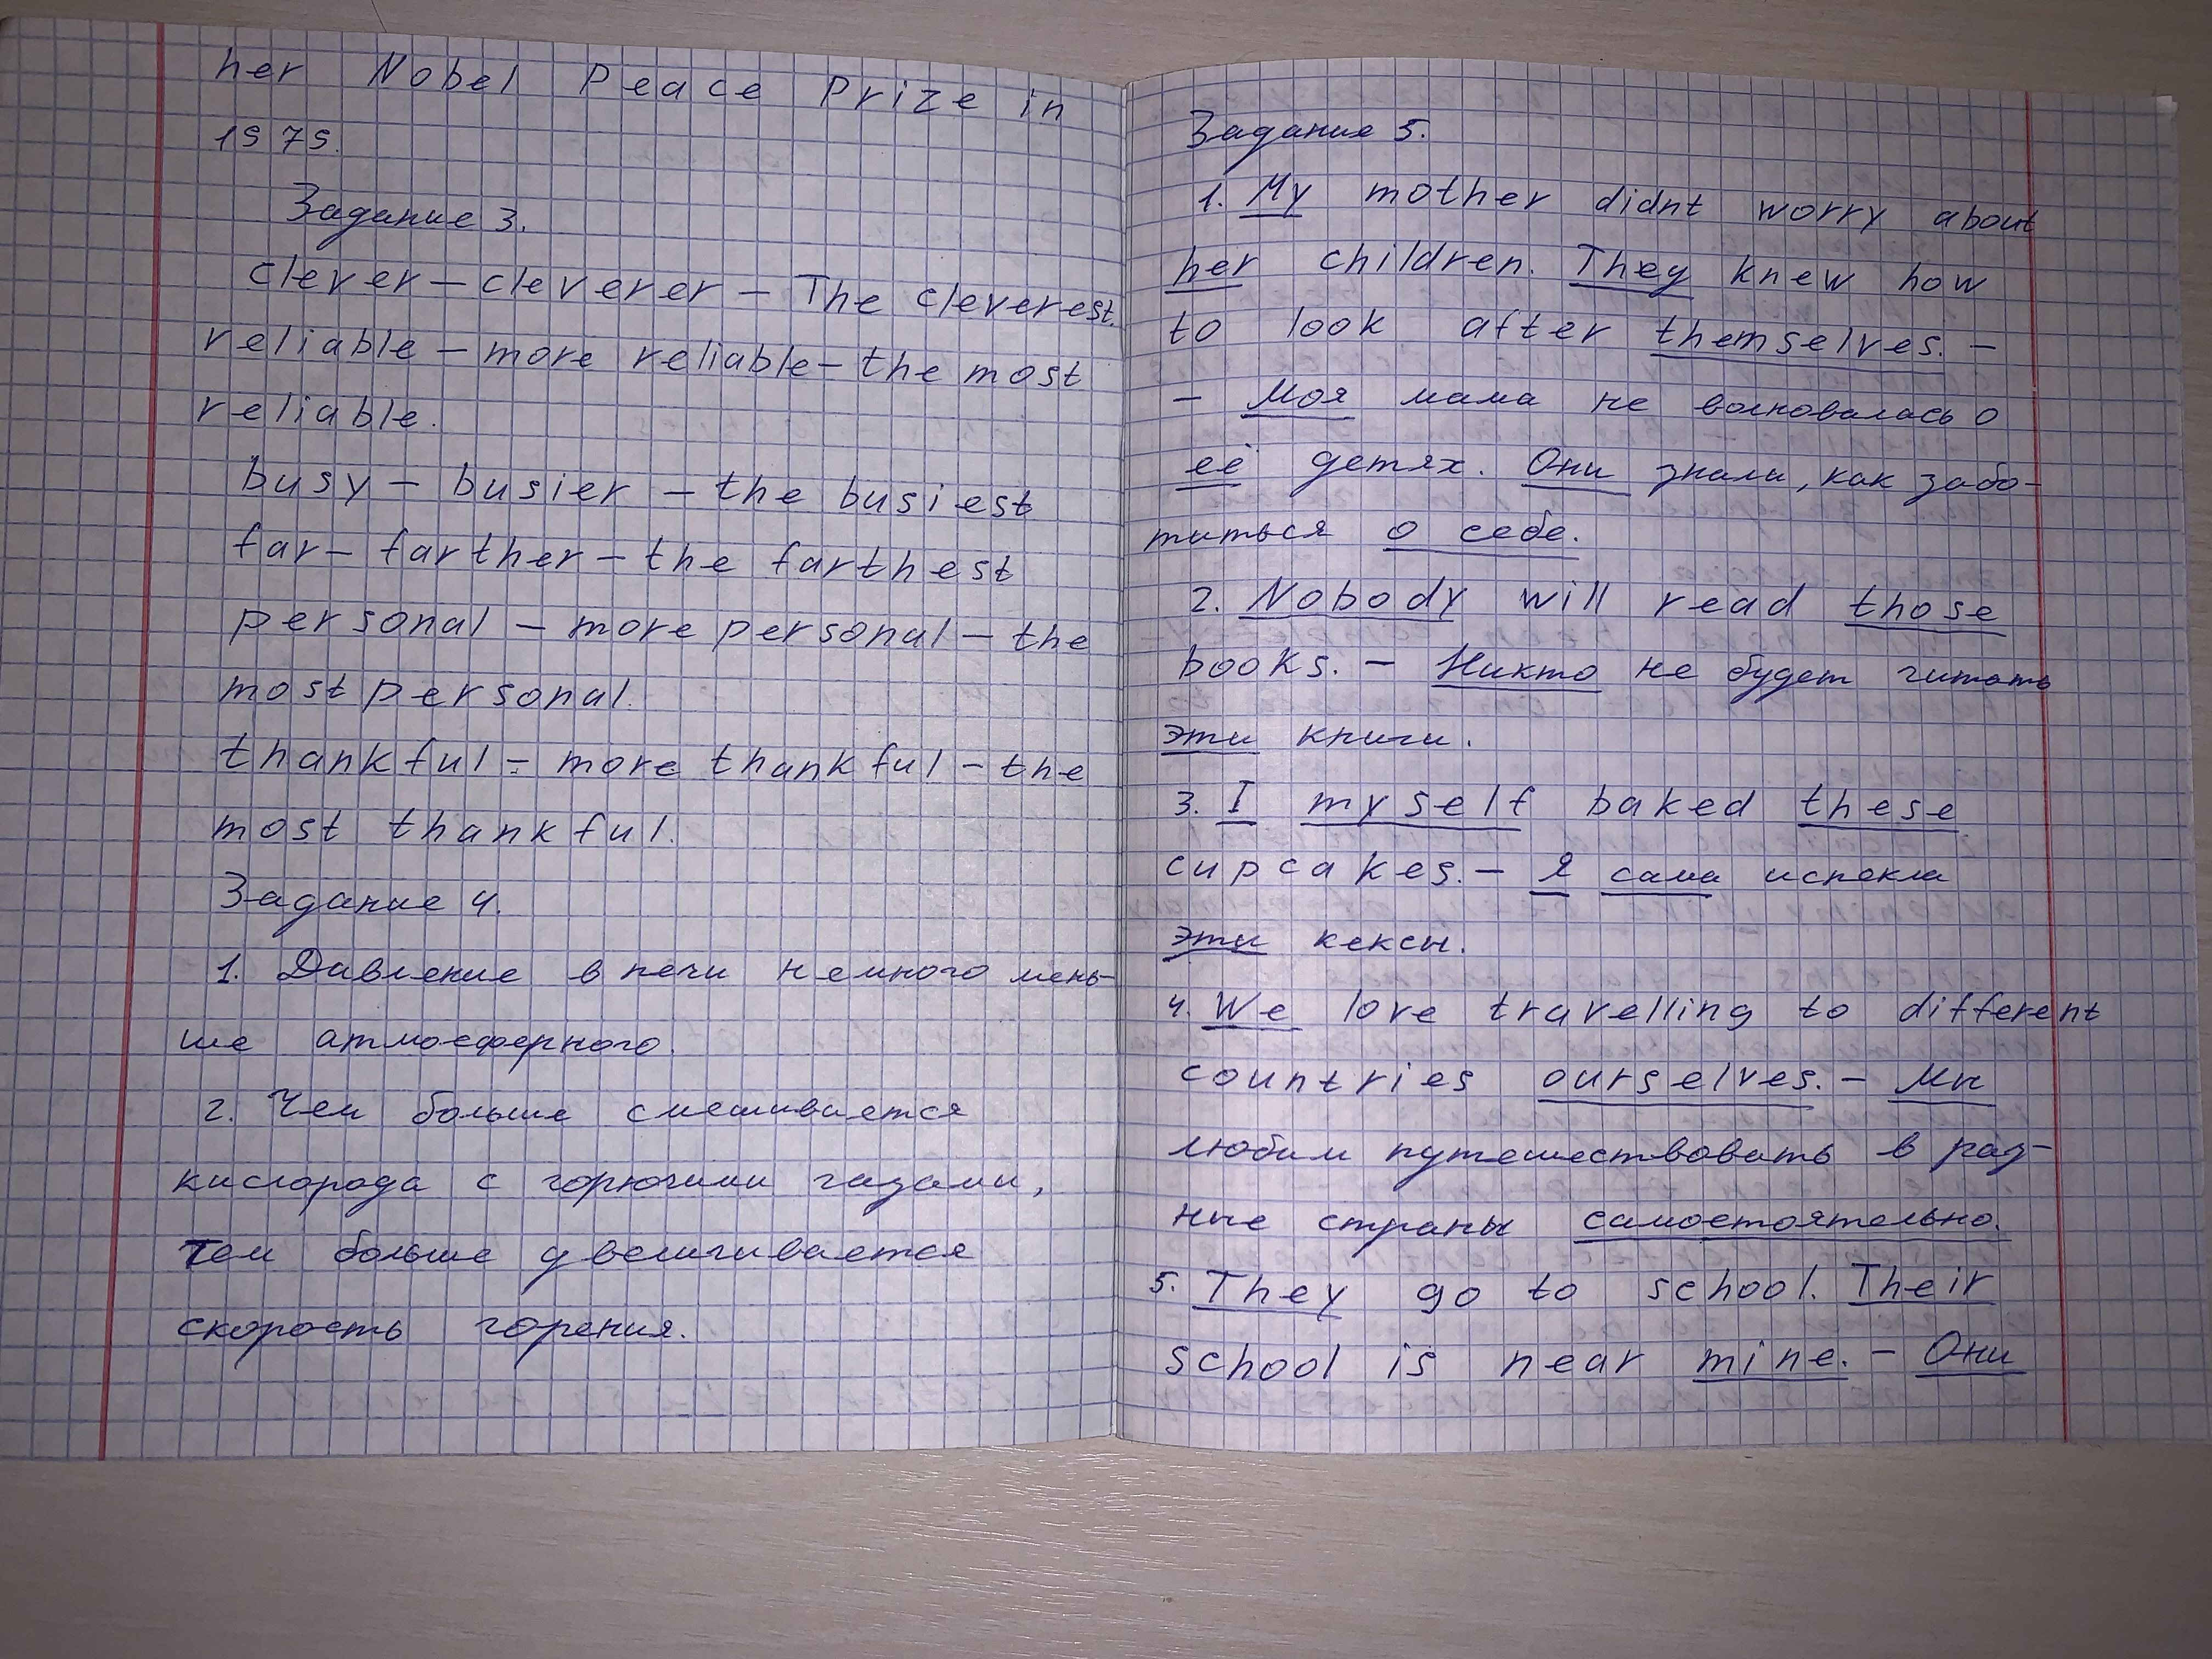 her Nobel Peace Prize in
1979.
Задание 3.
clever – cleverer – The cleverest.
reliable – more reliable – the most
reliable.
busy – busier – the busiest
far – farther – the farthest
personal – more personal – the
most personal.
thankful – more thankful – the
most thankful.
Задание 4.
1. Давление в печи немного мень-
ше атмосферного.
2. Чем больше смешивается
кислорода с горючими газами,
тем больше увеличивается
скорость горения.
Задание 5.
1. My mother didnt worry about
her children. They knew how
to look after themselves. –
– Моя мама не волновалась о
её детях. Они знали, как забо-
титься о себе.
2. Nobody will read those
books. – Никто не будет читать
эти книги.
3. I myself baked these
cupcakes. – Я сама испекла
эти кексы.
4. We love travelling to different
countries ourselves. – Мы
любим путешествовать в раз-
ные страны самостоятельно.
5. They go to school. Their
school is near mine. – Они